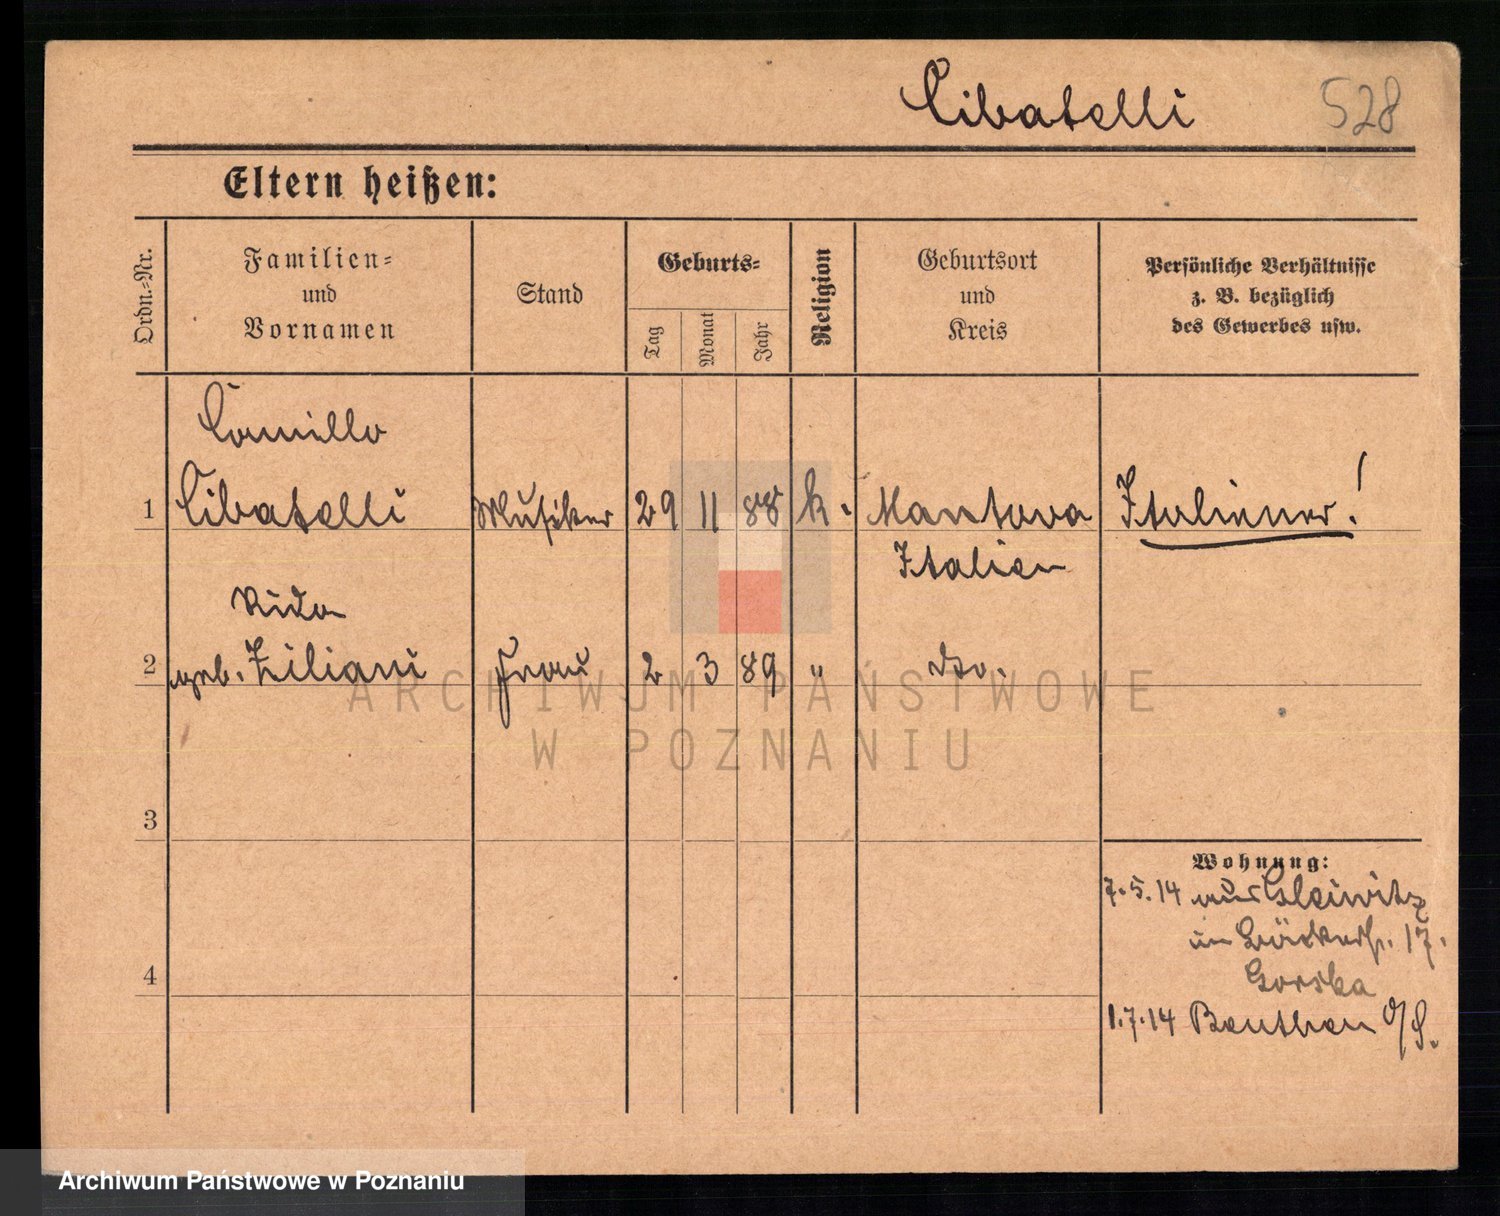 Cibatelli 528
Eltern heißen:
Ordn.-Nr.
Familien-
und
Vornamen
Stand
Geburts-
Tag
Monat
Jahr
Religion
Geburtsort
und
Kreis
Persönliche Verhältnisse
z. B. bezüglich
des Gewerbes usw.
Camillo
1 Cibatelli Musiker 29 11 88 k. Mantova Italiener!
Italien
Aida
2 geb. Ziliani Frau 2 3 89 " do.
3
Wohnung:
7.5.14 aus Gleiwitz
in Bäckerstr. 17.
4 Gorska
1.7.14 Beuthen O/S.
ARCHIWUM PAŃSTWOWE
W POZNANIU
Archiwum Państwowe w Poznaniu